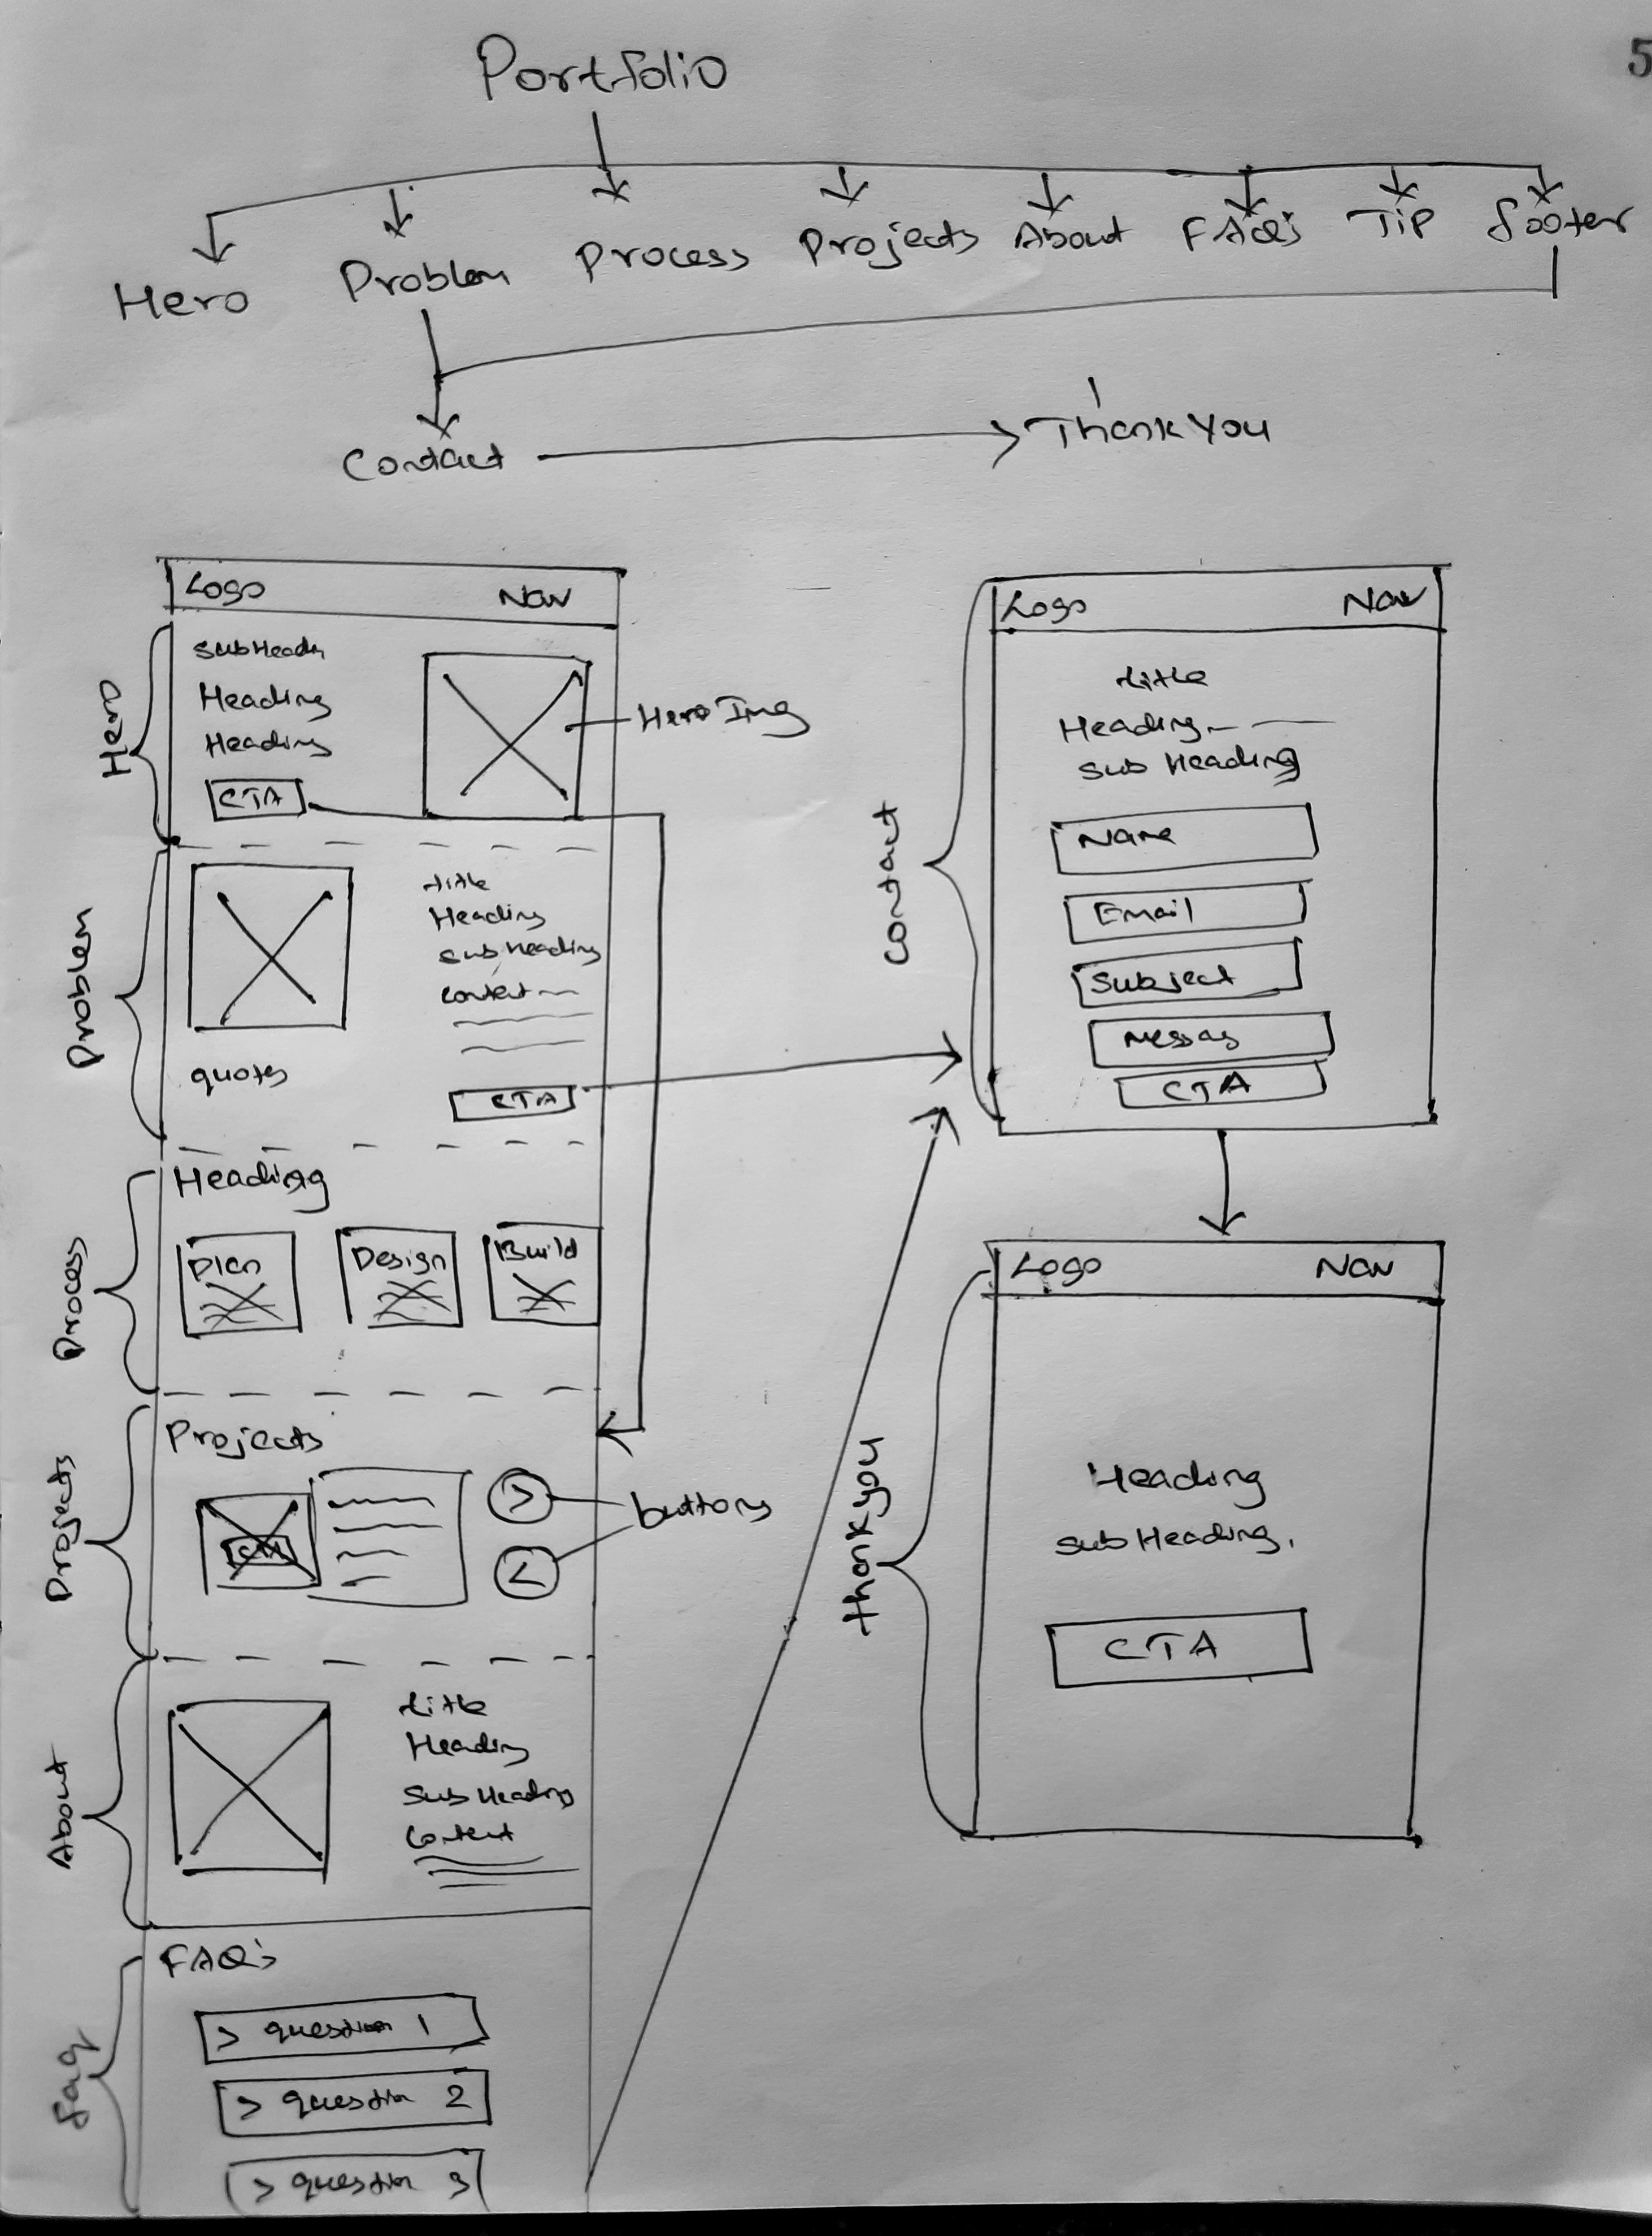 5
Portfolio
Hero Problem Process Projects About FAQ's Tip footer
Contact Thank You
Logo Nav
Hero
SubHeadin
Heading
Heading
CTA
Hero Img
Problem
title
Heading
sub heading
content
quotes
CTA
Process
Heading
Plan Design Build
Projects
Projects
CTA
buttons
About
title
Heading
Sub Heading
Content
faq
FAQ's
> question 1
> question 2
> question 3
Contact
Logo Nav
title
Heading
Sub Heading
Name
Email
Subject
Messag
CTA
thankyou
Logo Nav
Heading
sub Heading.
CTA